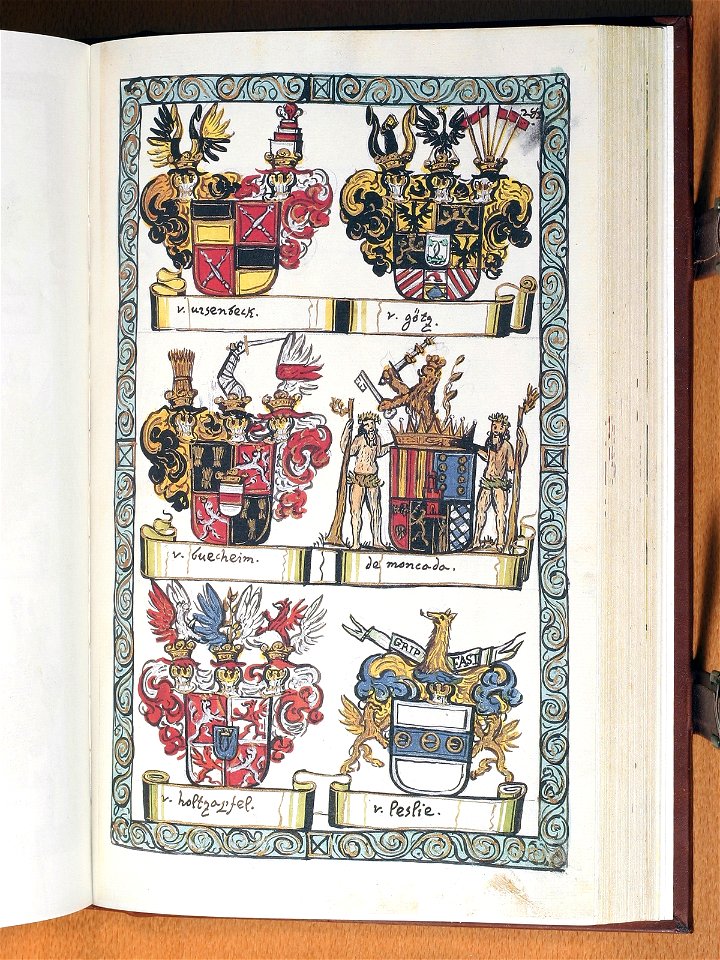 v. ursenbeck.
v. götz.
v. buecheim.
de moncada.
GRIP FAST
v. holtzapfel.
v. leslie.